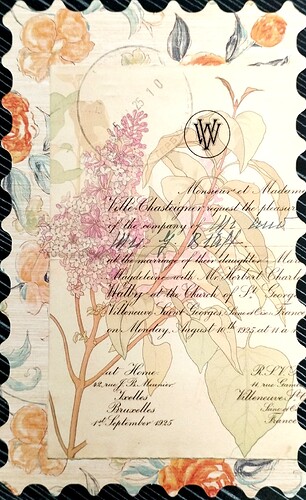 W
Monsieur et Madame
Velle-Chasteigner request the pleasur
of the company of Mr and
Mrs
at the marriage of their daughter Mar
Magdeleine with Mr Herbert Char
Walby at the Church of St. Georg
Villeneuve Saint Georges Seine et Oise France
on Monday, August 10th 1925 at 11 a
at Home
42, rue J. B. Meunier
Ixelles
Bruxelles
1st September 1925
R.S.V.P.
11 rue
Villeneuve St
Seine et O
France